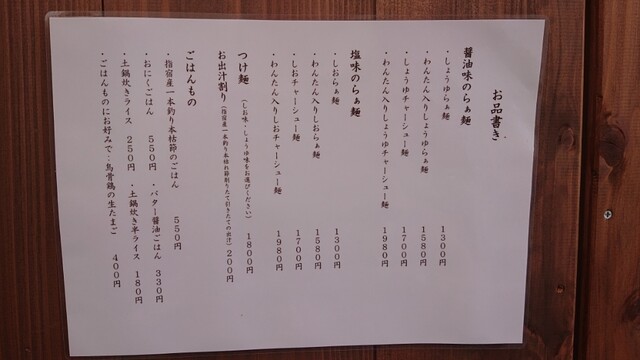 お品書き
醤油味のらぁ麺
・しょうゆらぁ麺 1300円
・わんたん入りしょうゆらぁ麺 1580円
・しょうゆチャーシュー麺 1700円
・わんたん入りしょうゆチャーシュー麺 1980円
塩味のらぁ麺
・しおらぁ麺 1300円
・わんたん入りしおらぁ麺 1580円
・しおチャーシュー麺 1700円
・わんたん入りしおチャーシュー麺 1980円
つけ麺 (しお味・しょうゆ味をお選びください) 1800円
お出汁割り (指宿産一本釣り本枯れ節削りたて引きたての出汁) 200円
ごはんもの
・指宿産一本釣り本枯節のごはん 550円
・おにくごはん 550円 ・バター醤油ごはん 330円
・土鍋炊きライス 250円 ・土鍋炊き半ライス 180円
・ごはんものにお好みで:烏骨鶏の生たまご 400円